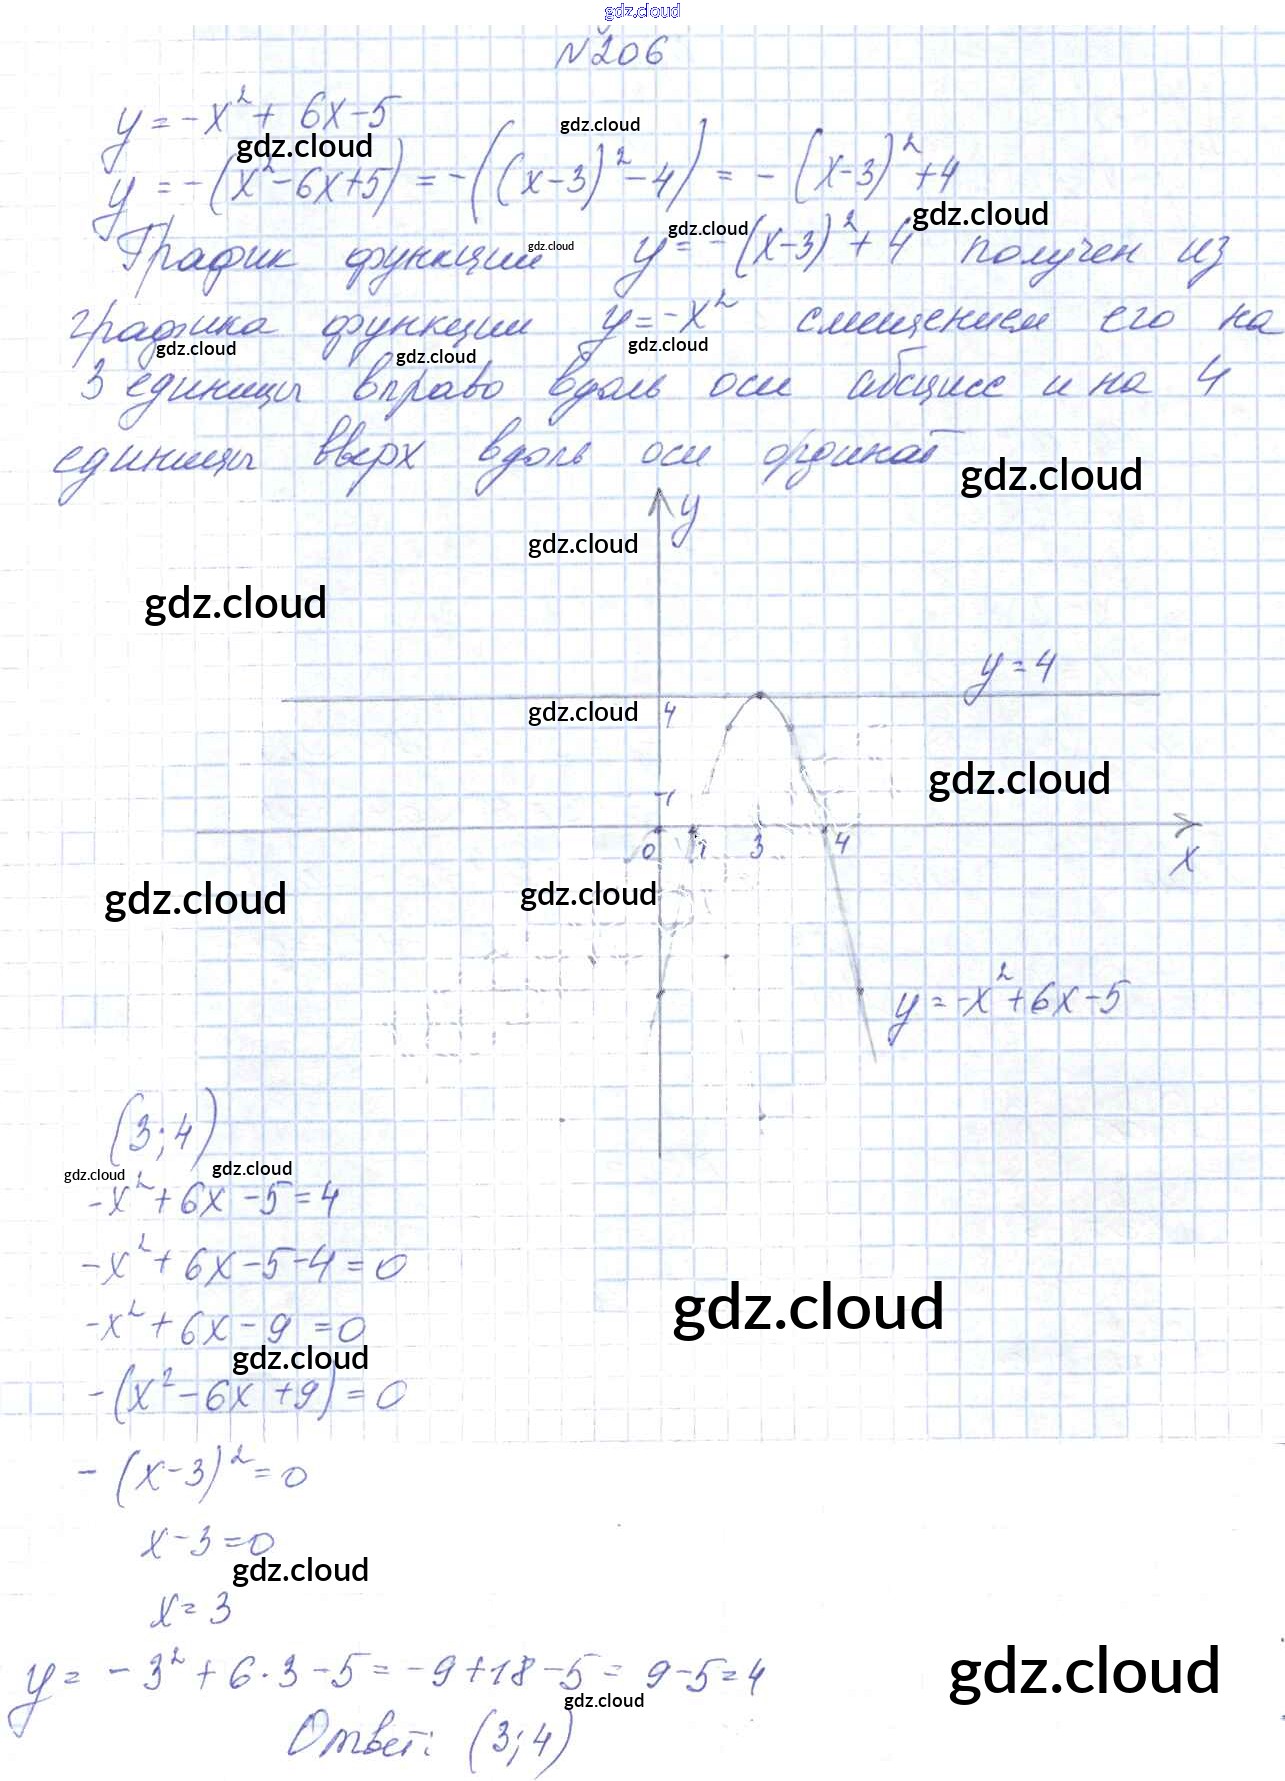 gdz.cloud
№206
y = -x² + 6x - 5
gdz.cloud
gdz.cloud
y = -(x² - 6x + 5) = -((x-3)² - 4) = -(x-3)² + 4
gdz.cloud
gdz.cloud
gdz.cloud
График функции y = -(x-3)² + 4 получен из
графика функции y = -x² смещением его на
gdz.cloud
gdz.cloud
gdz.cloud
3 единицы вправо вдоль оси абсцисс и на 4
единицы вверх вдоль оси ординат
gdz.cloud
y
gdz.cloud
gdz.cloud
y = 4
gdz.cloud
4
gdz.cloud
1
0 1 3 4
x
gdz.cloud
gdz.cloud
y = -x² + 6x - 5
(3; 4)
gdz.cloud
gdz.cloud
-x² + 6x - 5 = 4
-x² + 6x - 5 - 4 = 0
gdz.cloud
-x² + 6x - 9 = 0
gdz.cloud
-(x² - 6x + 9) = 0
-(x-3)² = 0
x - 3 = 0
gdz.cloud
x = 3
gdz.cloud
y = -3² + 6·3 - 5 = -9 + 18 - 5 = 9 - 5 = 4
gdz.cloud
Ответ: (3; 4)